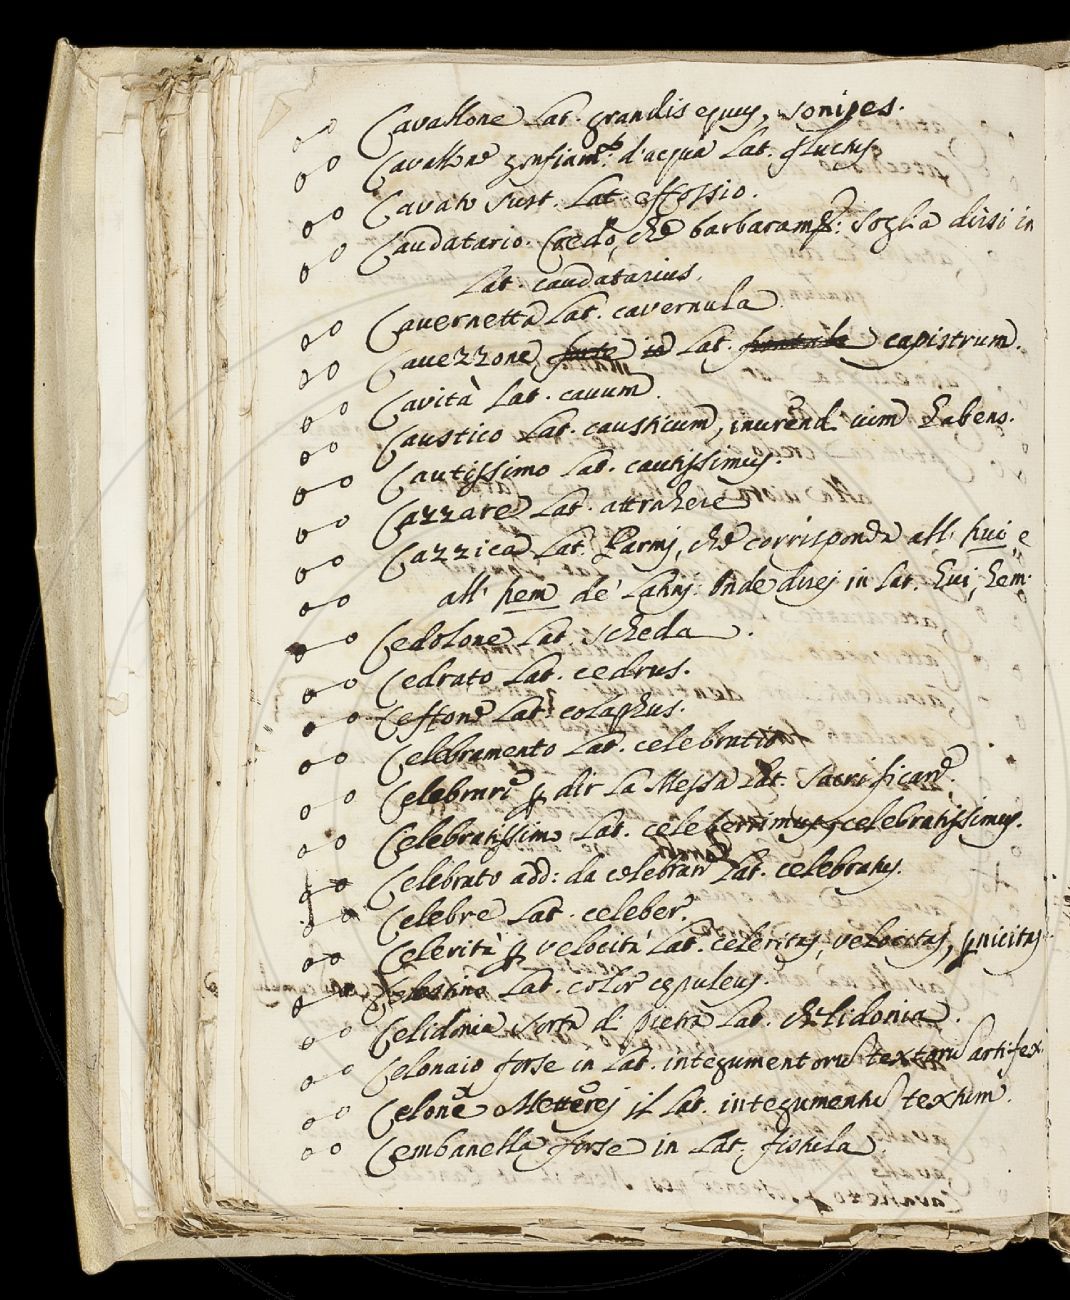 Cavallone Lat. grandis equus, sonipes.
Cavallone gonfiam.to d'acqua Lat. fluctus.
Cavato sust. Lat. effossio.
Caudatario. Credo, che barbaram.te: soglia dirsi in
Lat. caudatarius.
Cavernetta Lat. cavernula
Cavezzone Lat. capistrum.
Cavità Lat. cavum.
Caustico Lat. causticum, inurendi vim habens.
Cautissimo Lat. cautissimus.
Cazzare Lat. attrahere
Cazzica Lat. Parmi, che corrisponda all' hui e
all' hem de' Latini. Onde direi in Lat. hui, hem.
Cedolone Lat. scheda.
Cedrato Lat. cedrus.
Ceffone Lat. colaphus.
Celebramento Lat. celebratio
Celebrare p dir la Messa Lat. sacrificare.
Celebratissimo Lat. celeberrimus, celebratissimus.
Celebrato add: da celebrare Lat. celebratus.
Celebre Lat. celeber.
Celerità p velocità Lat. celeritas, velocitas, pnicitas
Celestino Lat. color cępuleus.
Celidonia sorta di pietra Lat. chelidonia.
Celonaio forse in Lat. integumentorū textorū artifex
Celone Metterei il Lat. integumentū textum.
Cembanella forse in Lat. fistula.